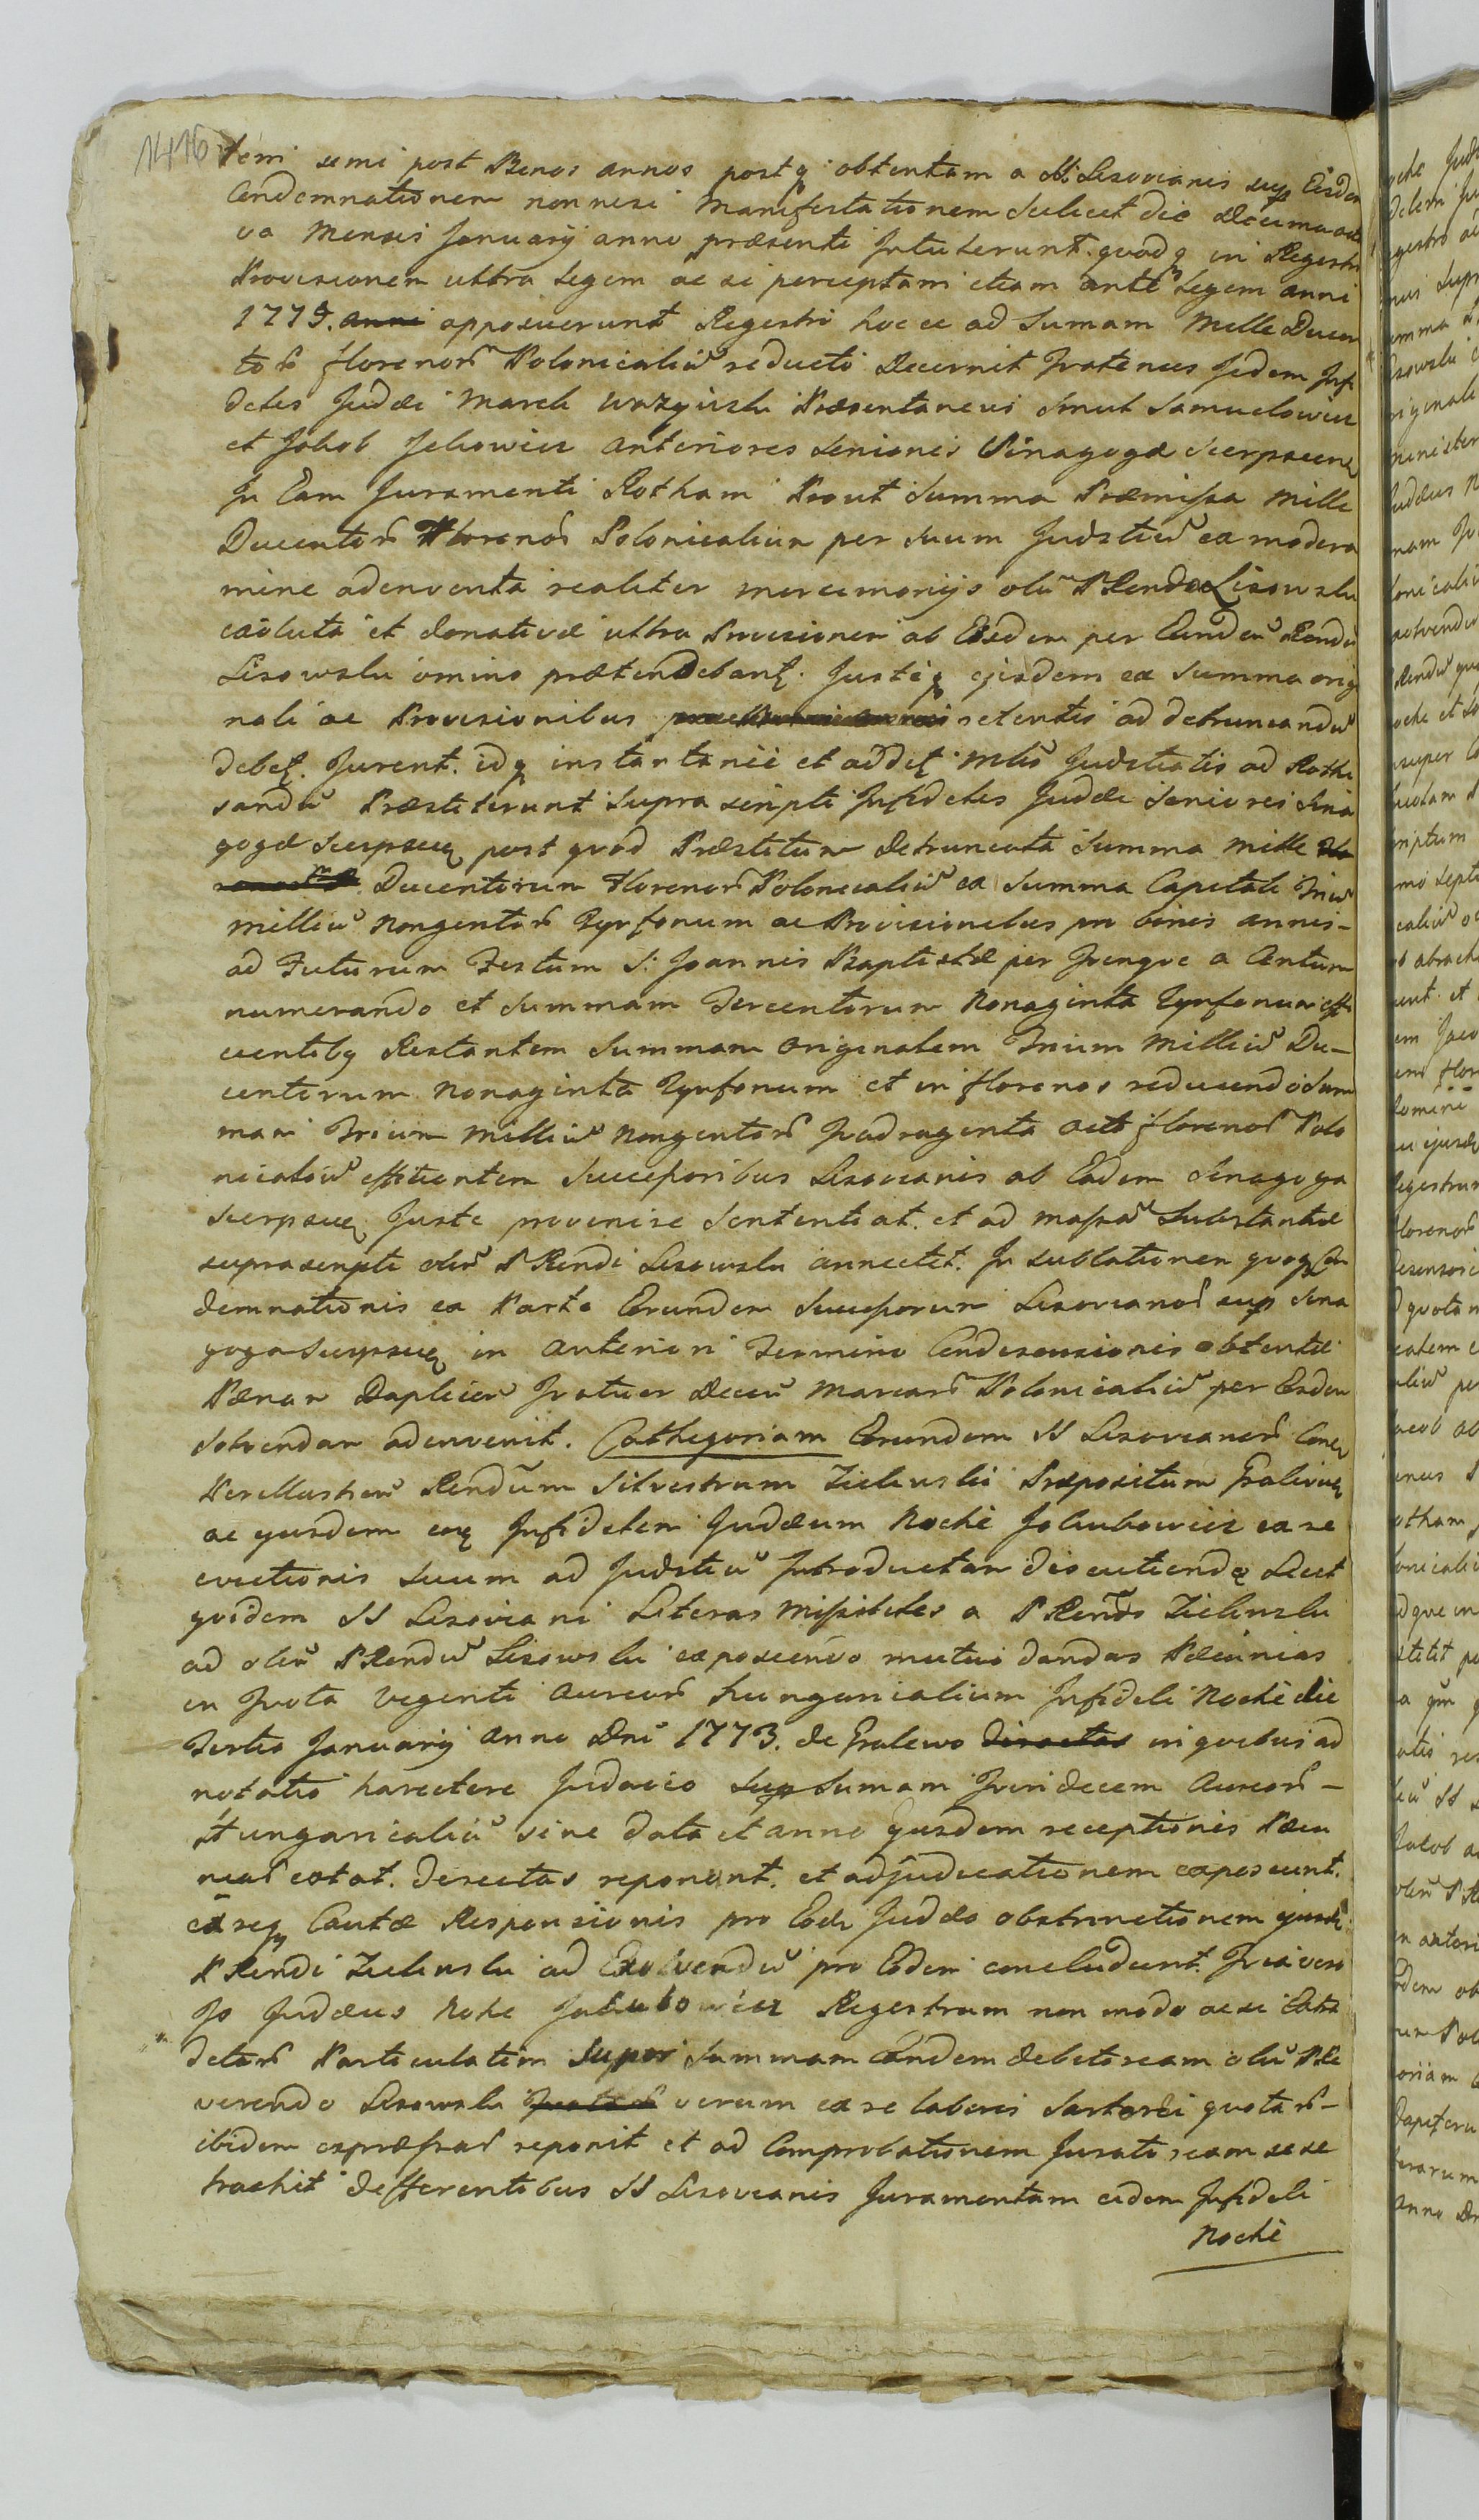 1416
semi post Binos annos postq obtentam a NN Lisovianis sup Eisdem
Condemnationem nonnisi Manifestationem scilicet die decima octa
va Mensis Januarij anno præsenti Intulerunt. quodq in Regestro
Provisionem ultra Legem ac si perceptam etiam ante Legem anni
1775. anni apposuerunt Regestri hocce ad Sumam Mille Ducen
toř florenoř Polonicaliũ reducti Decernit quatenus Iidem Infi
deles Judæi March Præsentaneus Smul Samuelowicz
et Jakob Jelowicz anteriores Seniores Sinagogæ Sierpscens
In Eam Juramenti Rotham Prout Summa Præmissa Mille
Ducentoř Florenoř Polonicalium per suum Judstiũ ex modera
mine adenventa realiter mercimonijs olĩ PRendo Lisowski
exoluta et donativæ ultra Provisionem ab Eisdem per Eundem Rendũ
Lisowski omino prætendebant. Justeq ejusdem ex Summa origi
nali ac Provisionibus retentis ad detruncandũ
debet. Jurent. idq instantanee et addit Mtis Judstiatis ad Rothi
sandũ Præstiterunt supra scripti Infideles Judæi Seniores Sina
gogæ Sierpscen post quod Præstitum detruncata Summa Mille
Ducentorum Florenoř Polonicaliũ ex Summa Capitali Triũ
milliũ Nongentoř Tynfonum ac Provisionibus pro binis annis-
ad Futurum Festum S: Joannis Baptistæ per quinque a Centum
numerando et Summam Tercentorum Nonaginta Tynfonum effi
cientibq Restantem Summam Originalem Trium Milliũ Du-
centorum Nonaginta Tynfonum et in florenos reducendo Sum
mam Trium Milliũ Nongentoř Quadraginta octo florenoř Polo
nicaliũ efficientem Succeßoribus Lisovianis ab Eadem Sinagoga
Sierpscen Juste provenire Sententiat. et ad maßam Substantiæ
suprascripti olim P Rendi Lisowski annectet. In sublationem quoq Con
demnationis ex Parte Eorundem Succeßorum Lisovianoř sup Sina
goga Sierpscen in anteriori Termino Condescensionis obtentæ
Pænam Duplicem Quatuor decem Marcarř Polonicaliũ per Eosdem
Solvendam adenvenit. Cathegoriam Eorundem SS Lisovianoř Contra
Perillustrem Rendũm Silvestrum Zielinski Præpositum Gralivien
ac ejusdem Infidelem Judæum Noche Jakubowicz ex re
evictionis suum ad Judstiũ Introductam discutiendo Licet
quidem SS Lisoviani Literas Mißiteles a P Rendo Zielinski
ad olĩ P Rendũ Lisowski exposcendo mutuo dandas Pecunias
in Quota Viginti Aureoř hungaricalium Infideli Noche die
Tertio Januarij Anno Dni 1773. de Gralewo directas in quibus ad
notatio harectere Judaico Sup Sumam Quindecem Aureoř -
Hungaricaliũ sine data et anno Ejusdem receptionis Pecu
niař extat. directas reponunt. et adjudicationem exposcunt.
exreq Cautæ Responsionis pro Eodem Judæo obstrinctionem ejusdem
P Rendi Zielinski ad Exolvendũ pro Eodem concludunt. Quia vero
Is Judæus Noke Jakubowicz Regestrum non modo acsi Extra
datař Particulatim Super Summam Eandem debitoream olĩ P Re
verendo Lisowski Quotař verum ex re laboris Sartorei quotař-
ibidem expreßař reponit et ad Comprobationem Juratoream sese
trachit defferentibus SS Lisovianis Juramentum eidem Infideli
Noche